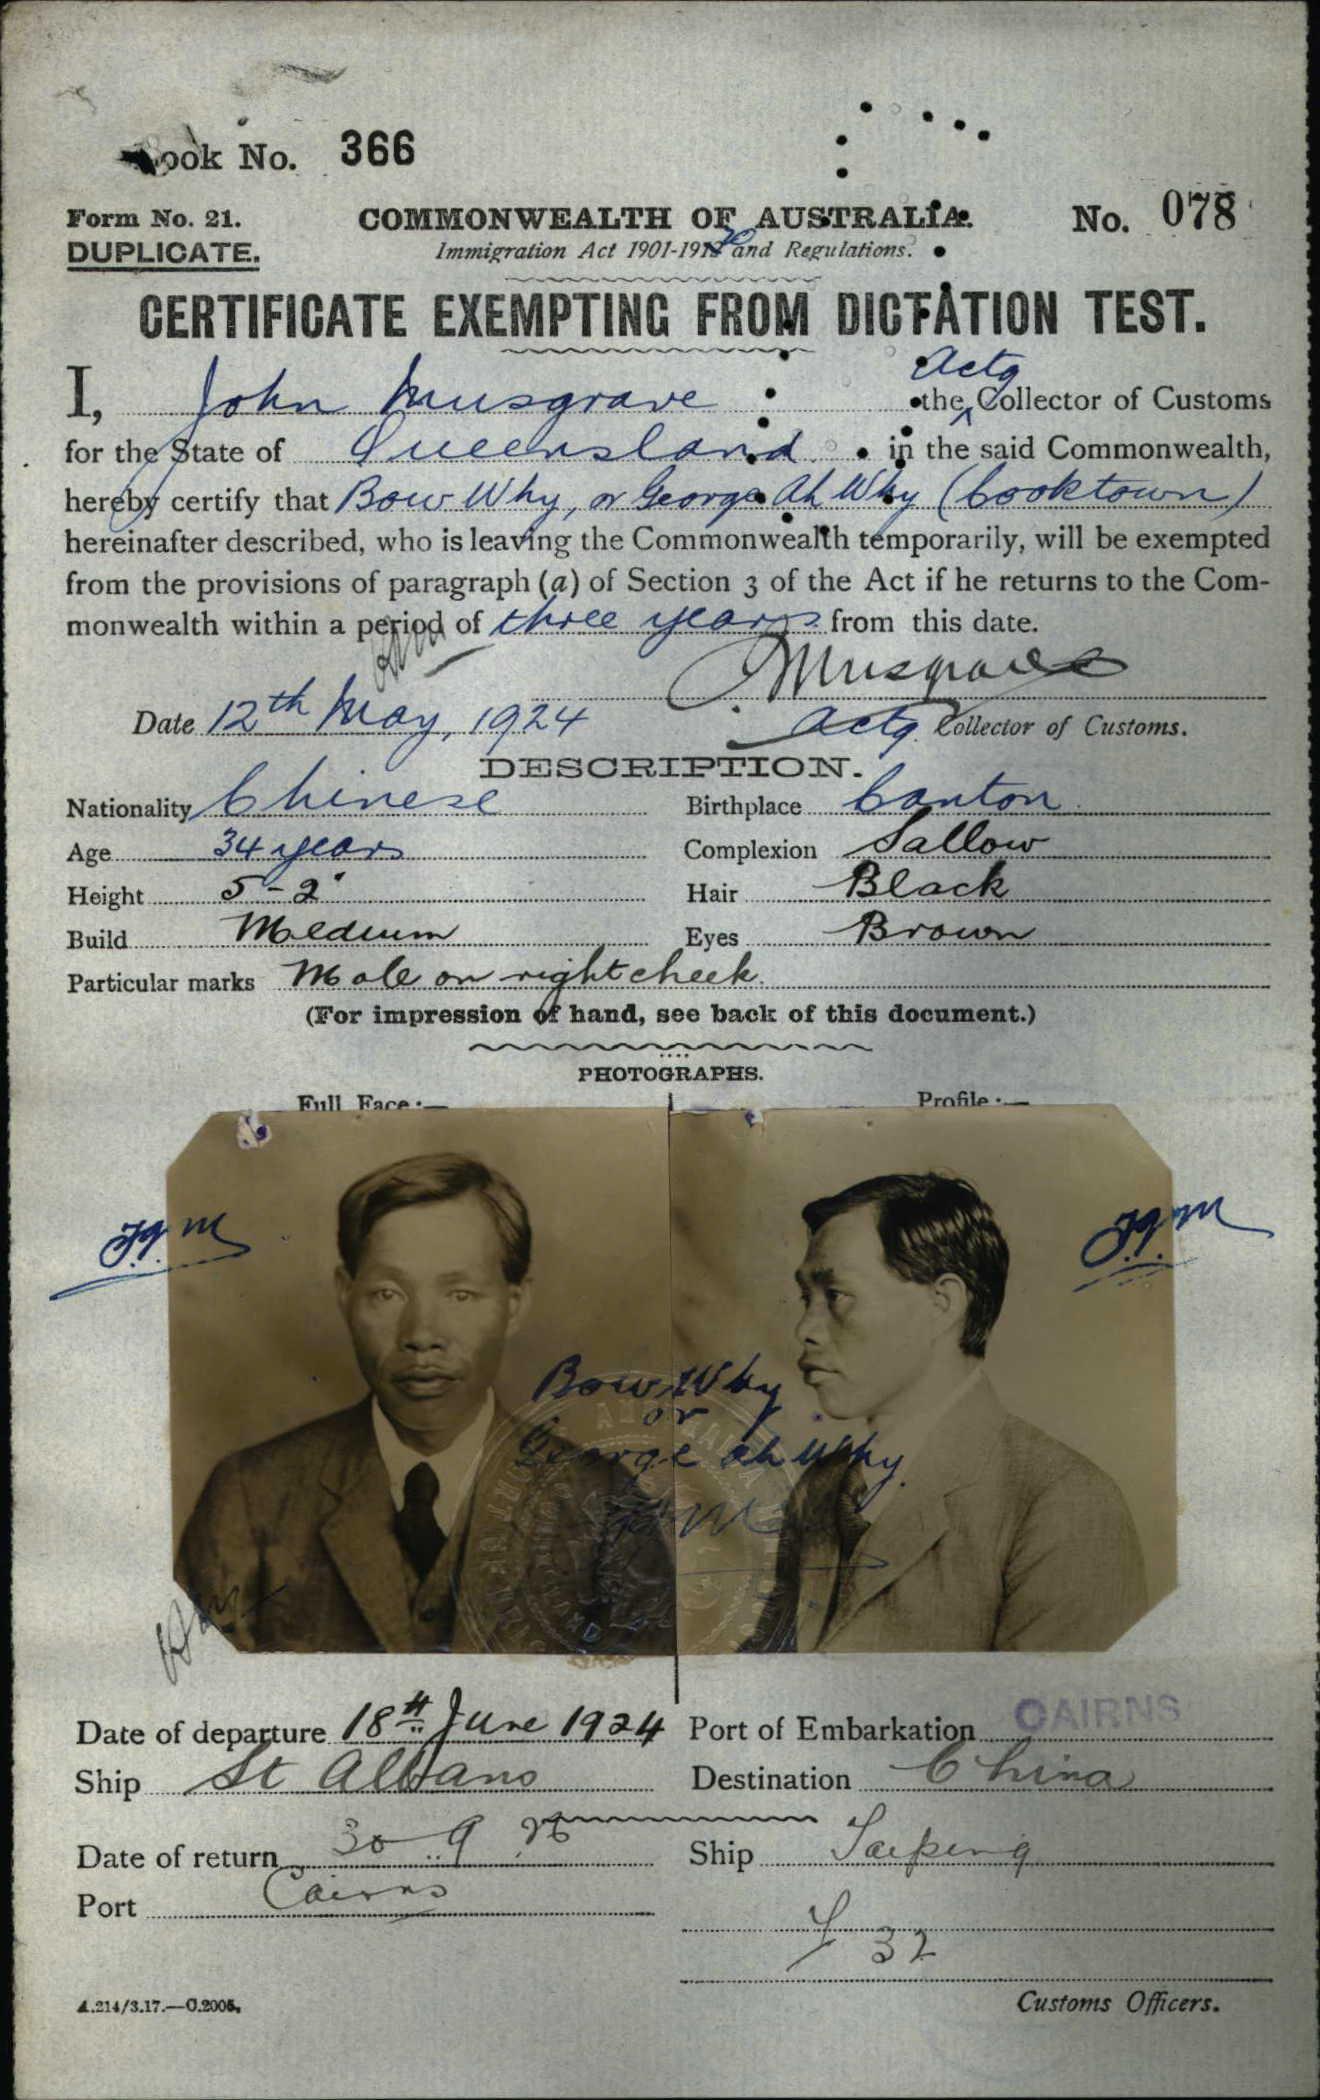 Book No. 366
Form No. 21.
COMMONWEALTH OF AUSTRALIA.
No. 078
DUPLICATE.
Immigration Act 1901-1920 and Regulations.
CERTIFICATE EXEMPTING FROM DICTATION TEST.
I, John Musgrave the Actg Collector of Customs
for the State of Queensland in the said Commonwealth,
hereby certify that Bow Why, or George Ah Why (Cooktown)
hereinafter described, who is leaving the Commonwealth temporarily, will be exempted
from the provisions of paragraph (a) of Section 3 of the Act if he returns to the Com-
monwealth within a period of three years from this date.
J Musgrave
Date 12th May, 1924
Actg. Collector of Customs.
DESCRIPTION.
Nationality Chinese
Birthplace Canton
Age 34 years
Complexion Sallow
Height 5-2"
Hair Black
Build Medium
Eyes Brown
Particular marks Mole on right cheek.
(For impression of hand, see back of this document.)
PHOTOGRAPHS.
Full Face:—
Profile:—
Bow Why
or
George Ah Why.
Date of departure 18th June 1924
Port of Embarkation CAIRNS
Ship St Albans
Destination China
Date of return 30 9 26
Ship Taiping
Port Cairns
32
A.214/3.17.—C.2005.
Customs Officers.